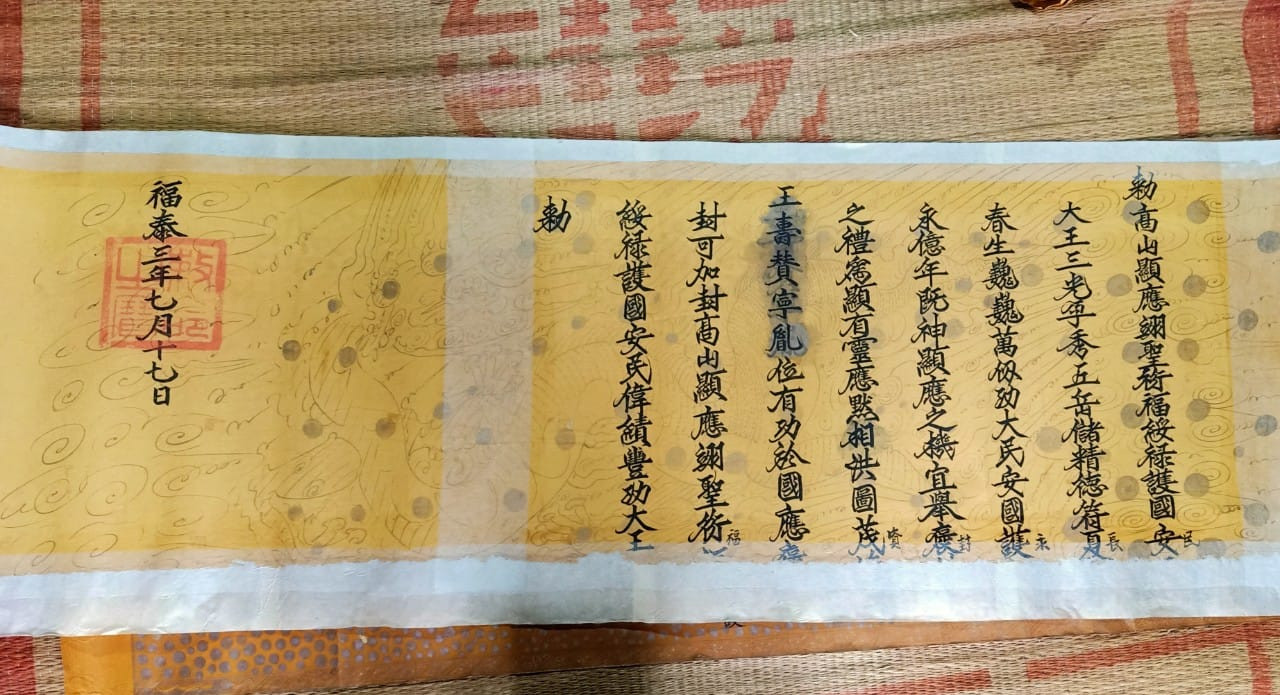 勅高山顯應翊聖衍福綏祿護國安民
大王三光孕秀五岳儲精德符夏長
春生巍巍萬仭功大民安國護
永億年旣神顯應之機宜舉褒封
之禮爲顯有靈應默相洪圖茂
王壽贊寧胤位有功於國應
封可加封高山顯應翊聖衍福
綏祿護國安民偉績豐功大王
勅
福泰三年七月十七日
敕命之寶